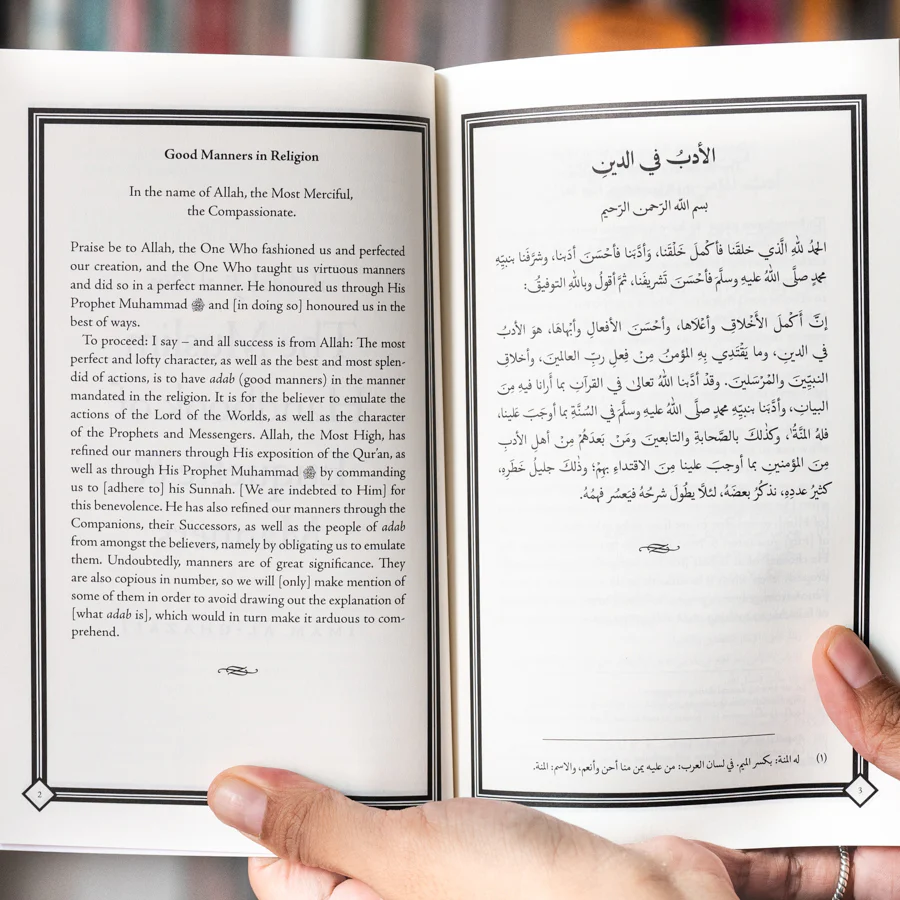 Good Manners in Religion
In the name of Allah, the Most Merciful,
the Compassionate.
Praise be to Allah, the One Who fashioned us and perfected
our creation, and the One Who taught us virtuous manners
and did so in a perfect manner. He honoured us through His
Prophet Muhammad ﷺ and [in doing so] honoured us in the
best of ways.
To proceed: I say – and all success is from Allah: The most
perfect and lofty character, as well as the best and most splen-
did of actions, is to have adab (good manners) in the manner
mandated in the religion. It is for the believer to emulate the
actions of the Lord of the Worlds, as well as the character
of the Prophets and Messengers. Allah, the Most High, has
refined our manners through His exposition of the Qur'an, as
well as through His Prophet Muhammad ﷺ by commanding
us to [adhere to] his Sunnah. [We are indebted to Him] for
this benevolence. He has also refined our manners through the
Companions, their Successors, as well as the people of adab
from amongst the believers, namely by obligating us to emulate
them. Undoubtedly, manners are of great significance. They
are also copious in number, so we will [only] make mention of
some of them in order to avoid drawing out the explanation of
[what adab is], which would in turn make it arduous to com-
prehend.
2
الأدبُ في الدينِ
بسم اللّه الرّحمن الرّحيم
الحمدُ للهِ الَّذي خلقَنا فأكْملَ خَلْقَنا، وَأدَّبَنا فأحْسَنَ أدَبنا، وشرَّفَنا بنبيِّهِ
محمدٍ صلَّى اللهُ عليهِ وسلَّمَ فأحْسَنَ تَشريفَنا، ثمَّ أقولُ وباللهِ التوفيقُ:
إنَّ أَكْملَ الأَخْلاقِ وأعْلاها، وأحْسَنَ الأفعالِ وأبْهاها، هوَ الأدبُ
في الدينِ، وما يَقْتَدِي بهِ المؤمنُ مِنْ فِعلِ ربِّ العالمينَ، وأخلاقِ
النبيِّينَ والمُرْسَلينَ. وقدْ أدَّبنا اللهُ تعالى في القرآنِ بما أرانا فيهِ مِنَ
البيانِ، وأدَّبَنا بنبيِّهِ محمدٍ صلَّى اللهُ عليهِ وسلَّمَ في السُنَّةِ بما أوجَبَ عَلينا،
فلهُ المنَّةُ¹، وكذلكَ بالصَّحابةِ والتابعينَ ومَنْ بَعدَهُمْ مِنْ أهلِ الأدبِ
مِنَ المؤمنينِ بما أوجبَ علينا مِنَ الاقتداءِ بهمْ؛ وذلكَ جليلُ خَطَرِهِ،
كثيرُ عددِهِ، نذكُرُ بعضَهُ، لئلَّا يطُولَ شرحُهُ فيَعسُر فهمُهُ.
(١) له المنة: بكسر الميم، في لسان العرب: من عليه يمن منا أحن وأنعم، والاسم: المنة.
3